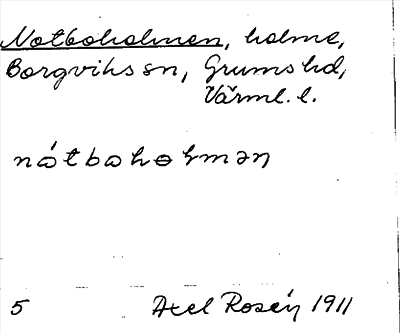 Notboholmen, holme,
Borgviks sn, Grums hd,
Värml. l.
nó̀tbohoɫmən
5 Axel Rosén 1911